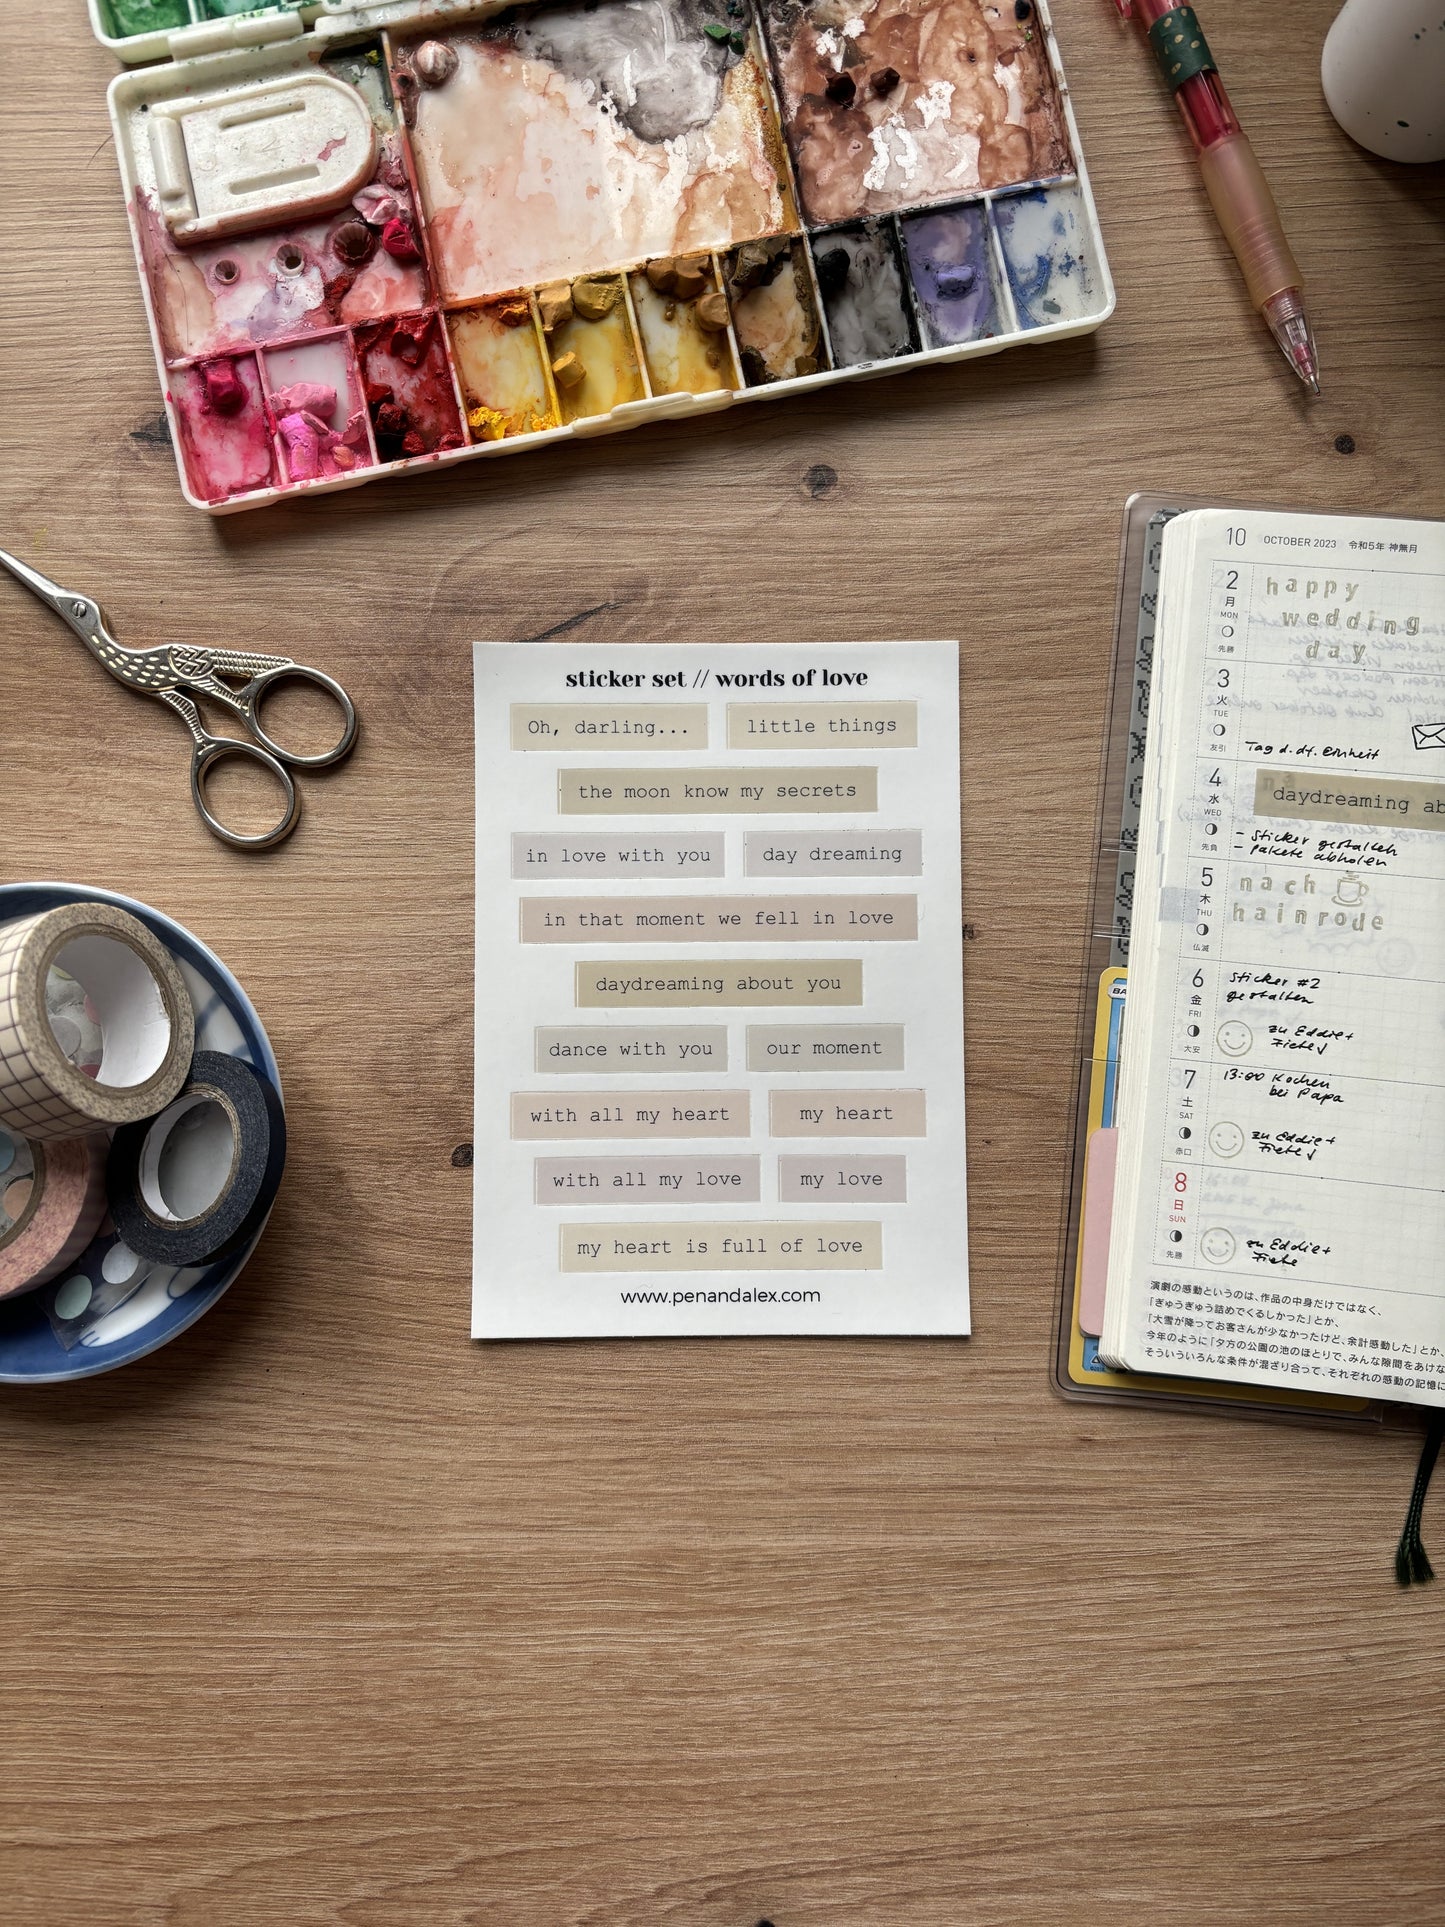 sticker set // words of love
Oh, darling...
little things
the moon know my secrets
in love with you
day dreaming
in that moment we fell in love
daydreaming about you
dance with you
our moment
with all my heart
my heart
with all my love
my love
my heart is full of love
www.penandalex.com
10 OCTOBER 2023 令和5年 神無月
2
月
MON
先勝
happy
wedding
day
3
火
TUE
友引
Tag d. dt. Einheit
4
水
WED
先負
daydreaming ab
- Sticker gestalten
- Pakete abholen
5
木
THU
仏滅
nach
hainrode
6
金
FRI
大安
Sticker #2
gestalten
zu Eddie +
Fiete
7
土
SAT
赤口
13:00 Kochen
bei Papa
zu Eddie +
Fiete
8
日
SUN
先勝
zu Eddie +
Fiete
演劇の感動というのは、作品の中身だけではなく、
「ぎゅうぎゅう詰めでくるしかった」とか、
「大雪が降ってお客さんが少なかったけど、余計感動した」とか、
今年のように「夕方の公園の池のほとりで、みんな隙間をあけな
そういういろんな条件が混ざり合って、それぞれの感動の記憶に
BA